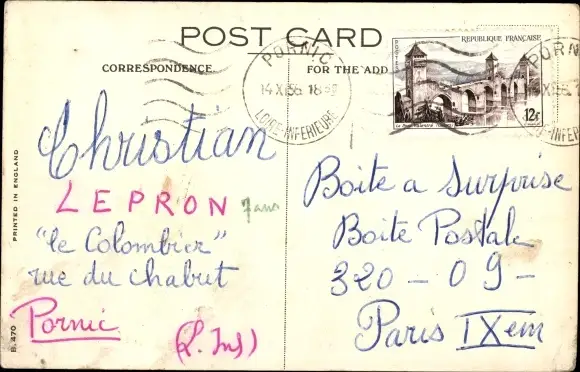 POST CARD
CORRESPONDENCE
FOR THE ADD
PORNIC
14 X 56. 18
LOIRE-INFERIEURE
REPUBLIQUE FRANÇAISE
POSTES
12F
PORNI
LOIRE-INFERI
Christian
LEPRON 7 ans
"le Colombier"
rue du chabut
Pornic
(L. Inf)
Boite a Surprise
Boite Postale
320 - 09 -
Paris IXem
PRINTED IN ENGLAND
B. 470